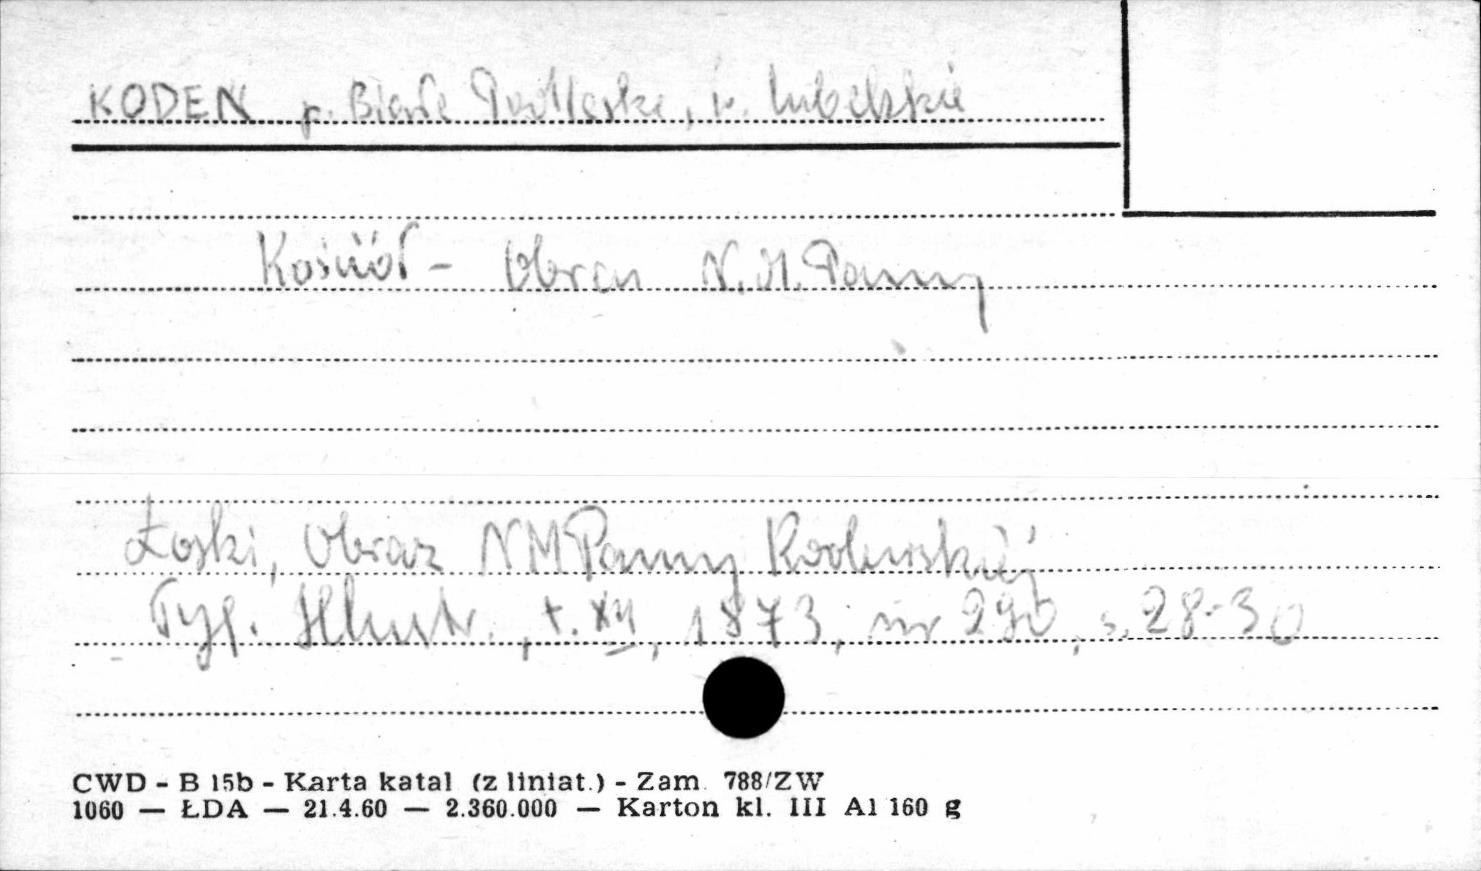 KODEŃ p. Biała Podlaska, w. lubelskie
Kościół - Obraz N. M. Panny
Łoski, Obraz NMPanny Kodeńskiéj
Tyg. Illustr., t. XII, 1873, nr 290, s. 28-30
CWD - B 15b - Karta katal (z liniat.) - Zam. 788/ZW
1060 — ŁDA — 21.4.60 — 2.360.000 — Karton kl. III A1 160 g